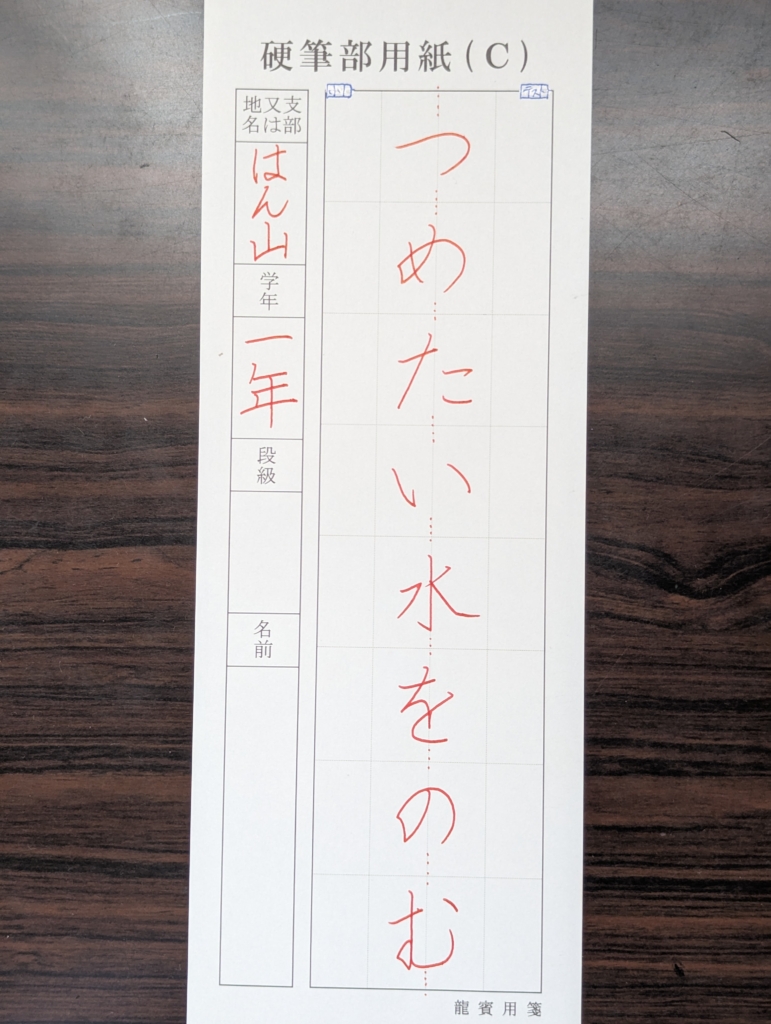 硬筆部用紙(C)
テスト
つめたい水をのむ
支部
又は
地名
はん山
学年
一年
段級
名前
龍賓用箋